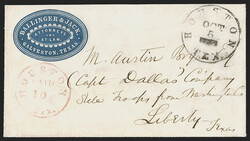 BALLINGER & JACK,
ATTORNEYS
AT LAW
GALVESTON, TEXAS
HOUSTON
OCT
5
TEX
HOUSTON
10
Mr. Austin Bryan
(Capt Dallas' Company
State Troops from Washington Co
Liberty
Texas